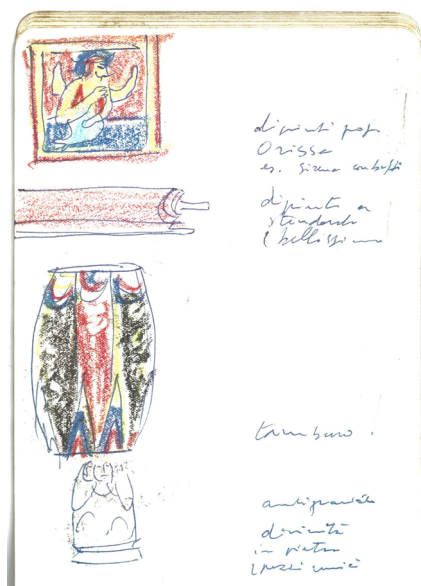 dipinti pop.
Orissa
es. Sirena con baffi
dipinto a
stendardo
bellissimo
tamburo.
antiquariato
divinità
in pietra
pezzi unici